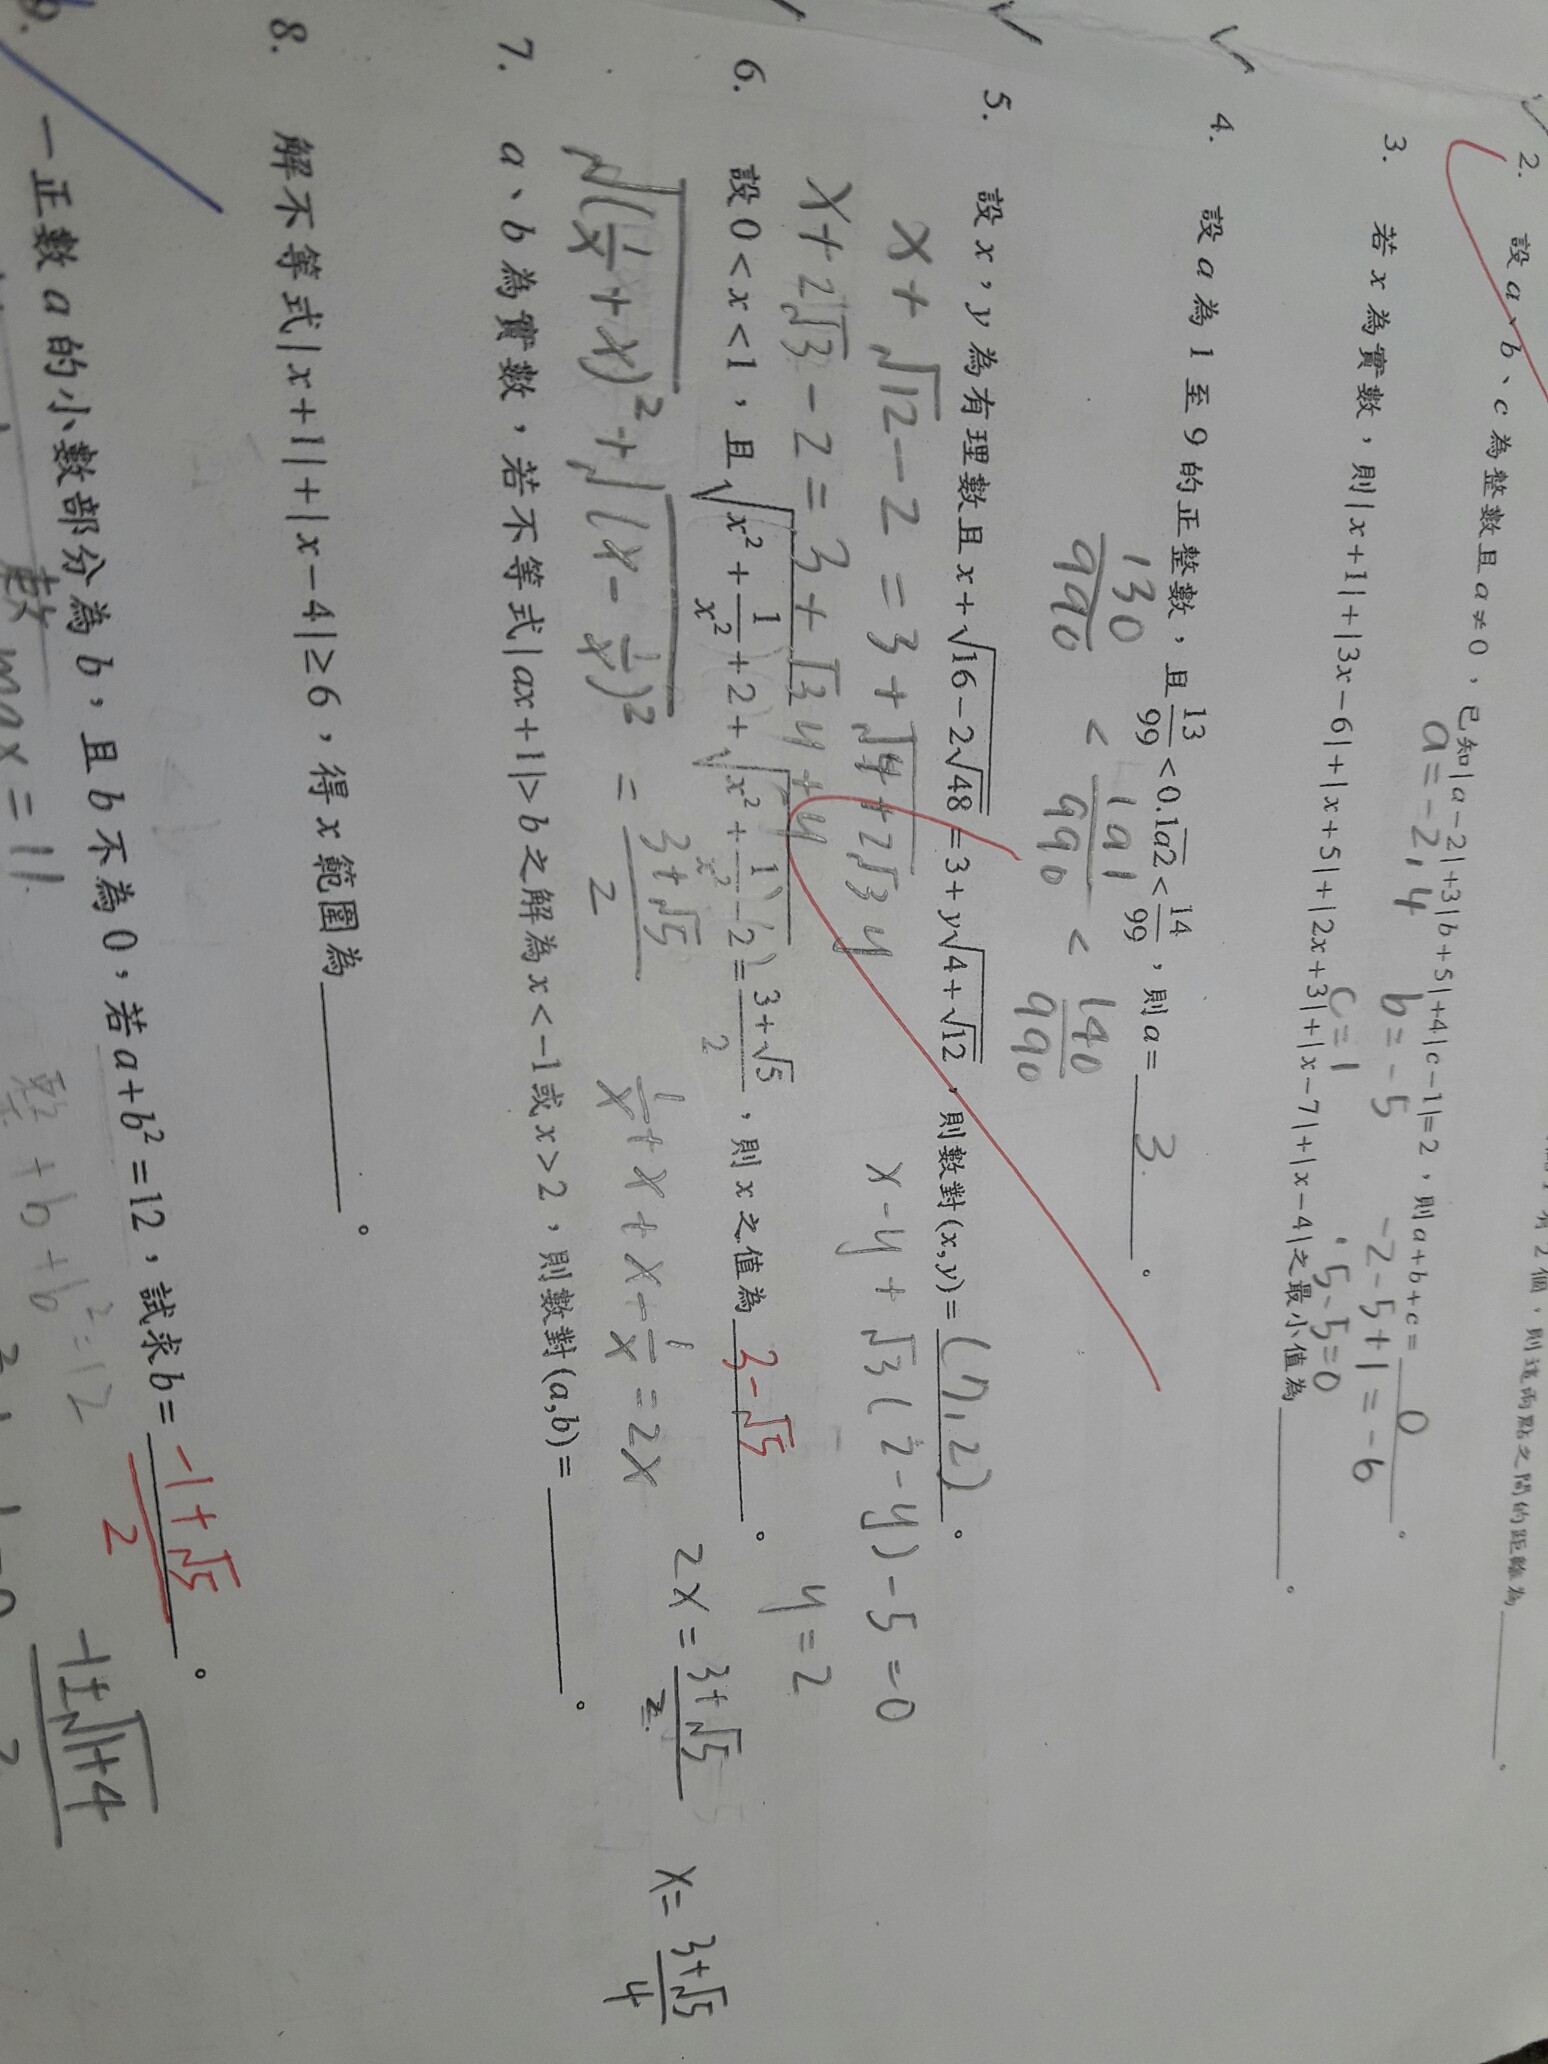 有2個，則這兩點之間的距離為＿＿＿。
2. 設a、b、c為整數且a≠0，已知|a−2|+3|b+5|+4|c−1|=2，則a+b+c=0。
a=−2,4 b=−5 −2−5+1=−6
c=1 5−5=0
3. 若x為實數，則|x+1|+|3x−6|+|x+5|+|2x+3|+|x−7|+|x−4|之最小值為＿＿＿。
4. 設a為1至9的正整數，且13/99<0.1a2<14/99，則a=3。
130/990 < 1a1/990 < 140/990
5. 設x，y為有理數且x+√(16−2√48)=3+y√(4+√12)，則數對(x,y)=(7,2)。
x+√12−2=3+√(4+2√3) y x−y+√3(2−y)−5=0
x+2√3−2=3+√3y+y y=2
6. 設0<x<1，且√(x²+1/x²+2)+√(x²+1/x²−2)=(3+√5)/2，則x之值為3−√5。
√(1/x+x)²+√(x−1/x)²=(3+√5)/2 1/x+x+x−1/x=2x 2x=(3+√5)/2 x=(3+√5)/4
7. a、b為實數，若不等式|ax+1|>b之解為x<−1或x>2，則數對(a,b)=＿＿＿。
8. 解不等式|x+1|+|x−4|≥6，得x範圍為＿＿＿。
9. 一正數a的小數部分為b，且b不為0，若a+b²=12，試求b=(−1+√5)/2。
數max=11. 整+b+b²=12 (−1±√(1+4))/2